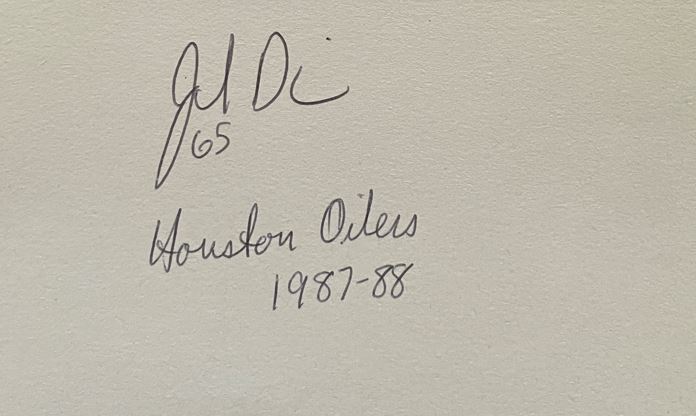 65
Houston Oilers
1987-88